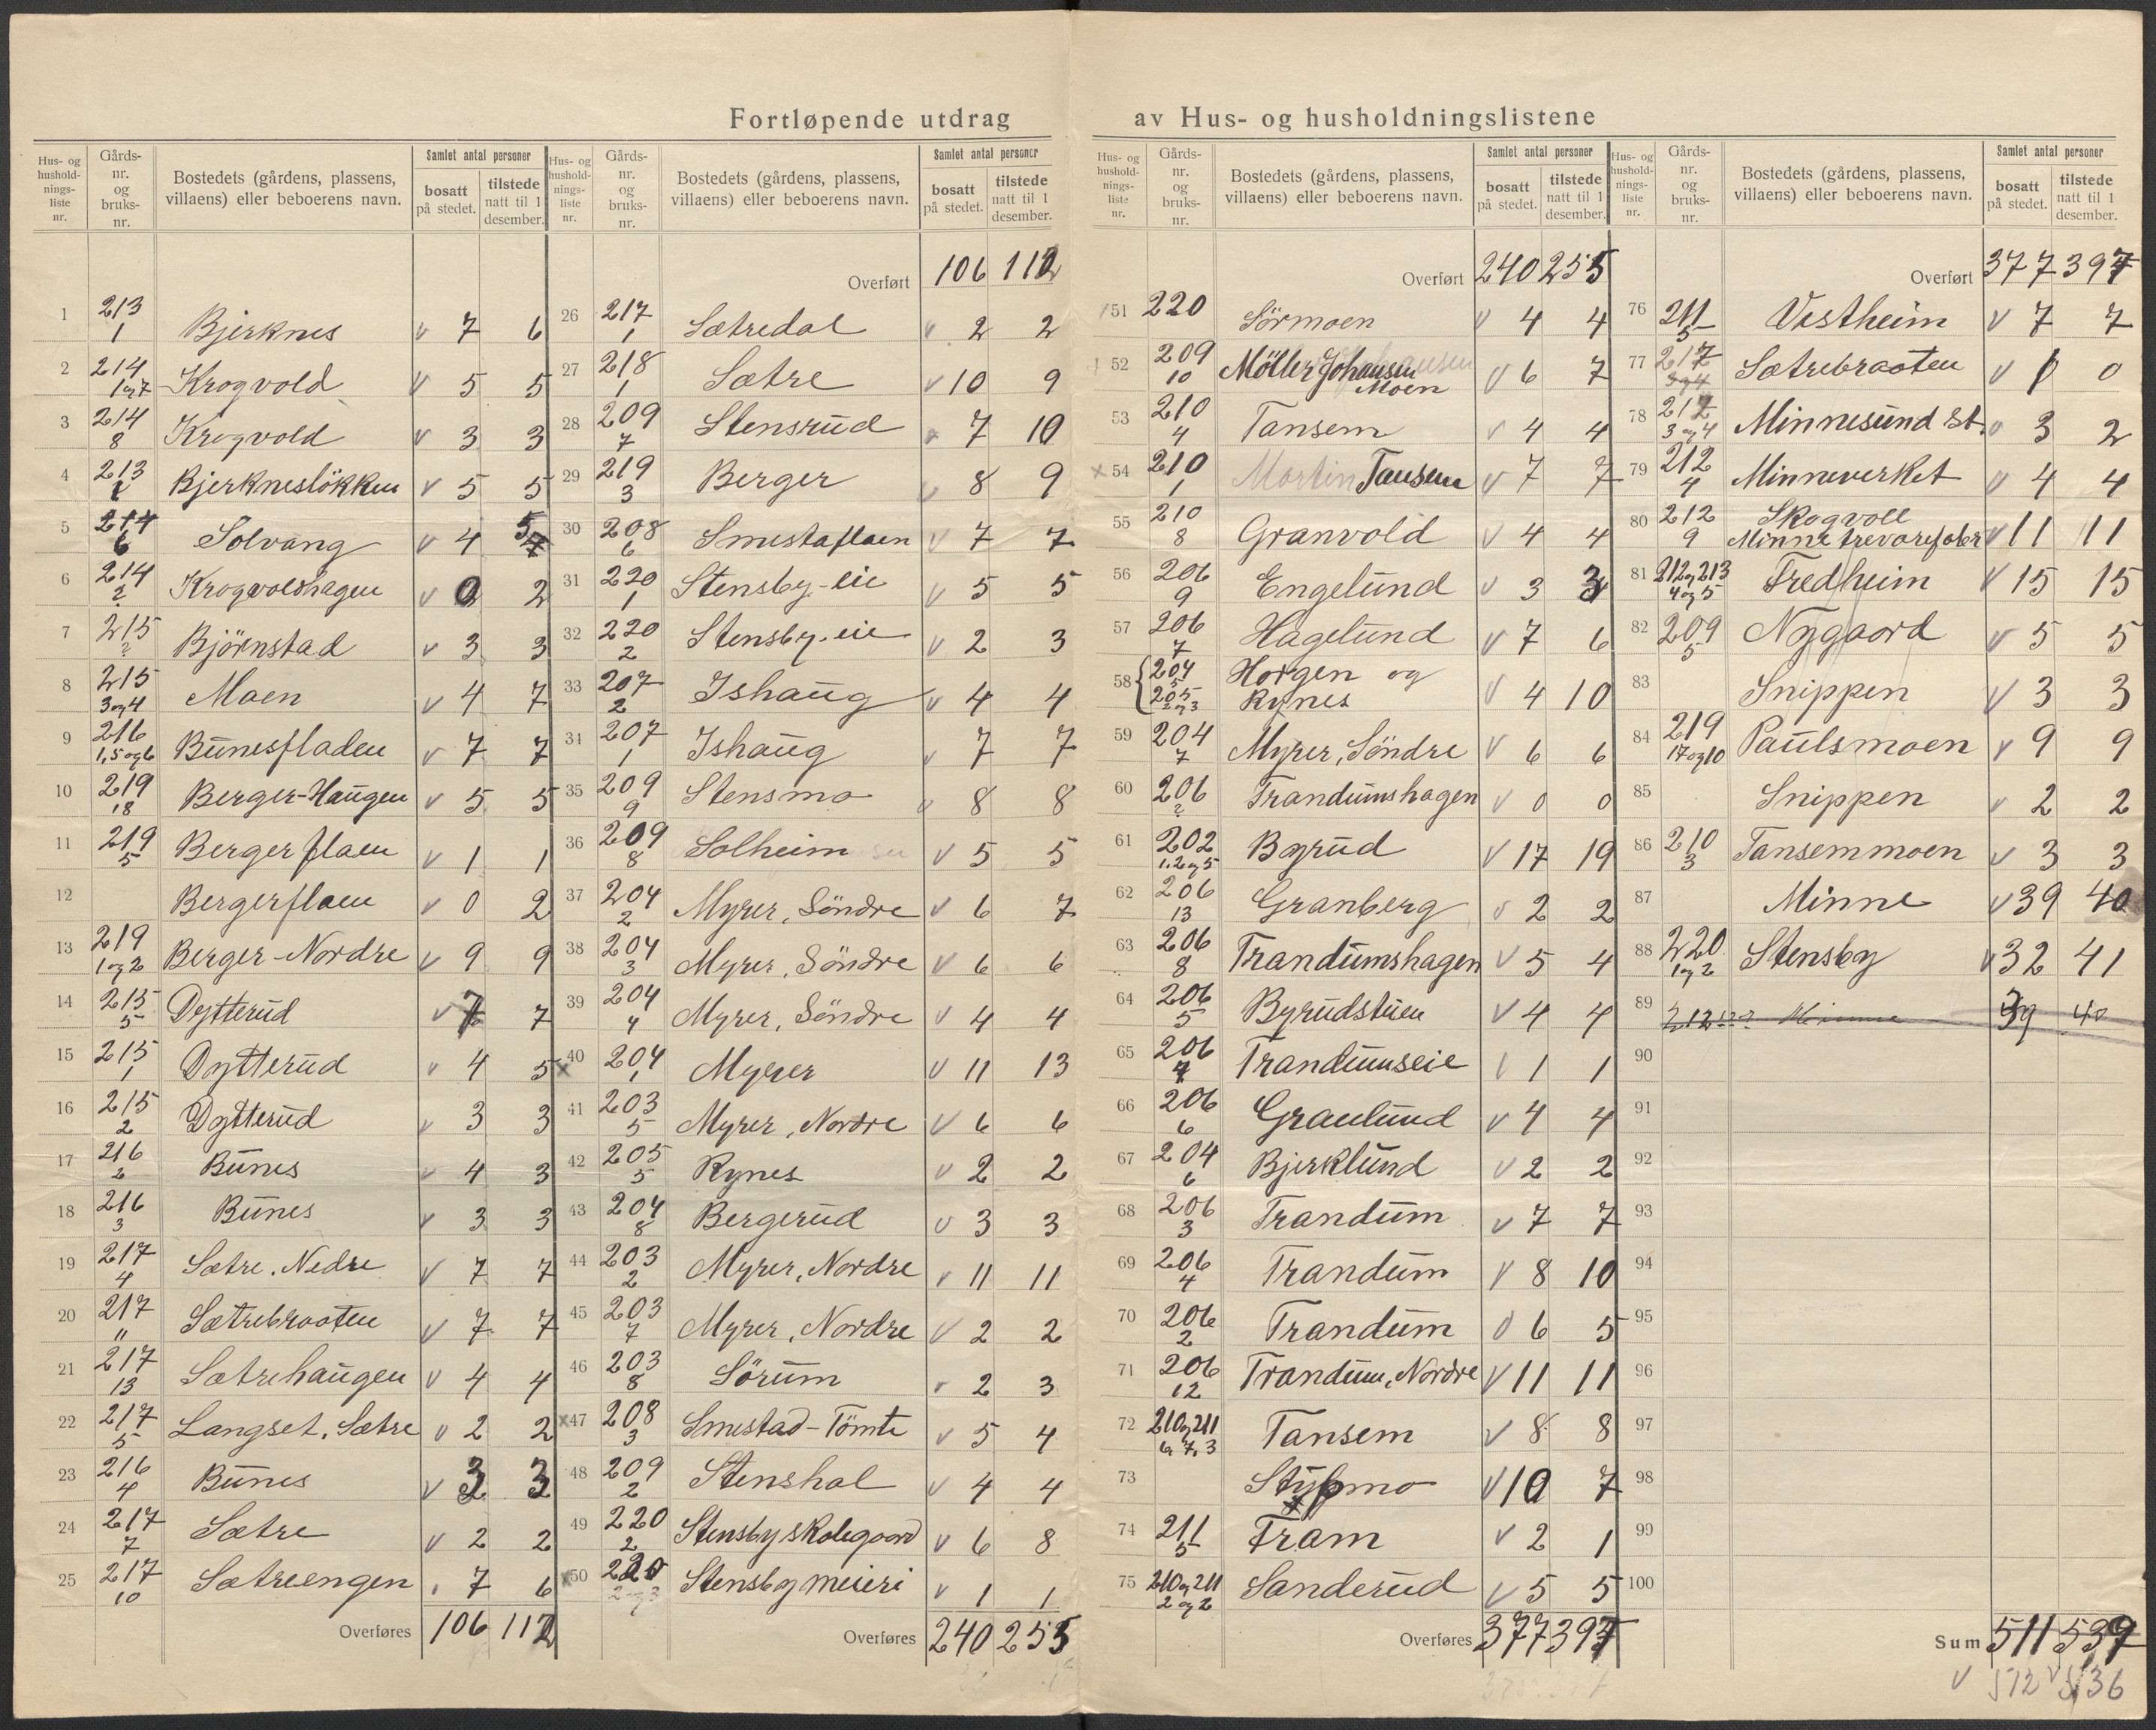 Fortløpende utdrag av Hus- og husholdningslistene
Hus- og husholdnings-liste nr. Gårds-nr. og bruks-nr. Bostedets (gårdens, plassens, villaens) eller beboerens navn. Samlet antal personer bosatt på stedet. tilstede natt til 1 desember.
1 213/1 Bjerknes v 7 6
2 214/1og7 Krogvold v 5 5
3 214/8 Krogvold v 3 3
4 213 Bjerknesløkken v 5 5
5 214/6 Solvang v 4 5
6 214/? Krogvoldhagen v 0 2
7 215/? Bjørnstad v 3 3
8 215/3og4 Moen v 4 7
9 216/1,5og6 Bunesfladen v 7 7
10 219/18 Berger-Haugen v 5 5
11 219/5 Bergerflaen v 1 1
12 Bergerflaen v 0 2
13 219/1og2 Berger-Nordre v 9 9
14 215/5 Dytterud v 7 7
15 215/1 Dytterud v 4 5
16 215/2 Dytterud v 3 3
17 216/2 Bunes v 4 3
18 216/3 Bunes v 3 3
19 217/4 Sætre, Nedre v 7 7
20 217/" Sætrebraaten v 7 7
21 217/13 Sætrehaugen v 4 4
22 217/5 Langset, Sætre v 2 2
23 216/4 Bunes v 3 3
24 217/7 Sætre v 2 2
25 217/10 Sætreengen 7 6
Overføres 106 112
Hus- og husholdnings-liste nr. Gårds-nr. og bruks-nr. Bostedets (gårdens, plassens, villaens) eller beboerens navn. Samlet antal personer bosatt på stedet. tilstede natt til 1 desember.
Overført 106 112
26 217/1 Sætredal v 2 2
27 218/1 Sætre v 10 9
28 209/7 Stensrud v 7 10
29 219/3 Berger v 8 9
30 208/6 Smestaflaen v 7 7
31 220/1 Stensby-eie v 5 5
32 220/2 Stensby-eie v 2 3
33 207/2 Ishaug v 4 4
34 207/1 Ishaug v 7 7
35 209/9 Stensmo v 8 8
36 209/8 Solheim v 5 5
37 204/2 Myrer, Søndre v 6 7
38 204/3 Myrer, Søndre v 6 6
39 204/4 Myrer, Søndre v 4 4
x40 204/1 Myrer v 11 13
41 203/5 Myrer, Nordre v 6 6
42 205/5 Rynes v 2 2
43 204/8 Bergerud v 3 3
44 203/2 Myrer, Nordre v 11 11
45 203/7 Myrer, Nordre v 2 2
46 203/8 Sørum v 2 3
x47 208/3 Smestad-Tømte v 5 4
48 209/2 Stenshol v 4 4
49 220/2 Stensby skolegaard v 6 8
x50 220/2og3 Stensby meieri v 1 1
Overføres 240 255
Hus- og husholdnings-liste nr. Gårds-nr. og bruks-nr. Bostedets (gårdens, plassens, villaens) eller beboerens navn. Samlet antal personer bosatt på stedet. tilstede natt til 1 desember.
Overført 240 255
51 220 Sørmoen v 4 4
52 209/10 Møller Johansen Moen v 6 7
53 210/4 Tansem v 4 4
x54 210/1 Martin Tansem v 7 7
55 210/8 Granvold v 4 4
56 206/9 Engelund v 3 3
57 206/7 Hagelund v 7 6
58 204/5 205/2og3 Horgen og Rynes v 4 10
59 204/7 Myrer, Søndre v 6 6
60 206/? Trandumshagen v 0 0
61 202/1.2og5 Byrud v 17 19
62 206/13 Granberg v 2 2
63 206/8 Trandumshagen v 5 4
64 206/5 Byrudstuen v 4 4
65 206 Trandumseie v 1 1
66 206/6 Granlund v 4 4
67 204/6 Bjerklund v 2 2
68 206/3 Trandum v 7 7
69 206/4 Trandum v 8 10
70 206/2 Trandum v 6 5
71 206/12 Trandum, Nordre v 11 11
72 210og211/6, 7, 3 Tansem v 8 8
73 v 10 7
74 211/5 Fram v 2 1
75 210og211/2 og 2 Sanderud v 5 5
Overføres 377 397
Hus- og husholdnings-liste nr. Gårds-nr. og bruks-nr. Bostedets (gårdens, plassens, villaens) eller beboerens navn. Samlet antal personer bosatt på stedet. tilstede natt til 1 desember.
Overført 377 397
76 211/5 Vestheim v 7 7
77 217/3og4 Sætrebraaten v 0
78 212/3og4 Minnesund St. v 3 2
79 212/4 Minneverket v 4 4
80 212/9 Skogvoll Minne trevarefabr v 11 11
81 212og213/4og5 Fredheim v 15 15
82 209/5 Nygaard v 5 5
83 Snippen v 3 3
84 219/17og10 Paulsmoen v 9 9
85 Snippen v 2 2
86 210/3 Tansemmoen v 3 3
87 Minne v 39 40
88 220/1og2 Stensby v 32 41
89 212 Minne 39 40
90
91
92
93
94
95
96
97
98
99
100
Sum 511 539
v 512 v 536